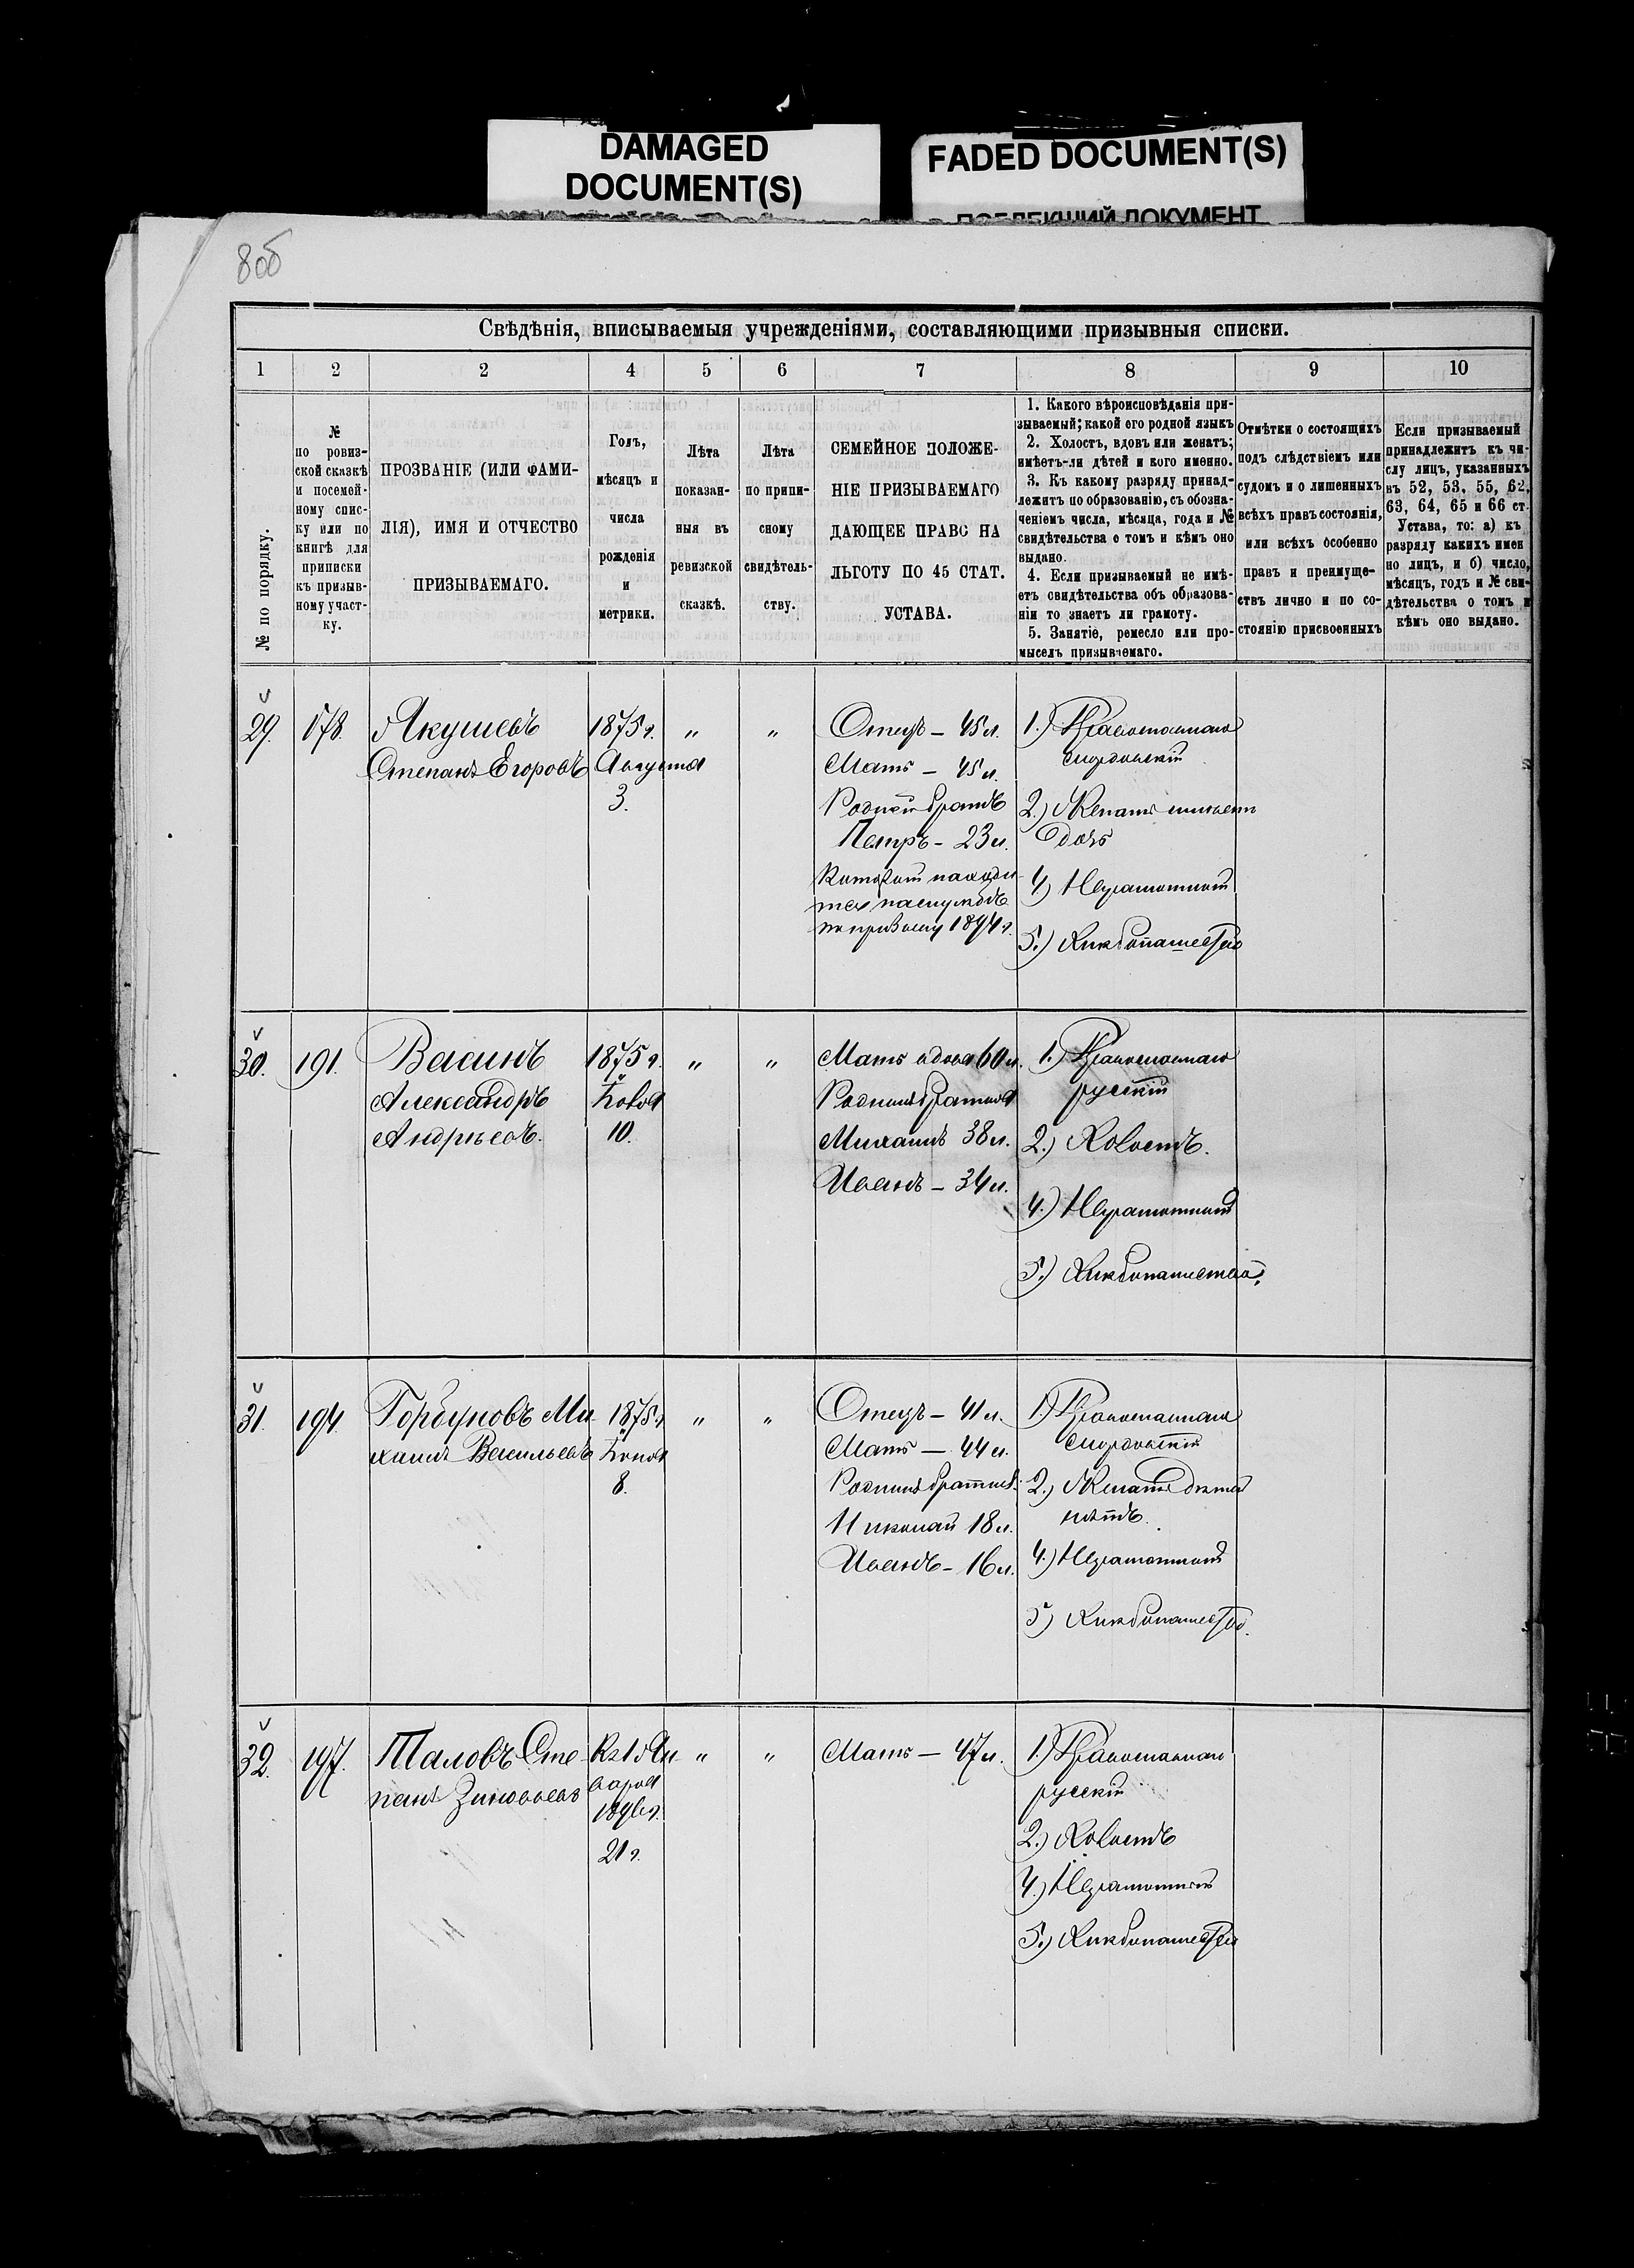 DAMAGED
DOCUMENT(S)
FADED DOCUMENT(S)
ПОБЛЕКШИЙ ДОКУМЕНТ
8об
Свѣдѣнія, вписываемыя учрежденіями, составляющими призывныя списки.
1 2 2 4 5 6 7 8 9 10
№ по порядку.
№
по ровиз-
ской сказкѣ
и посемей-
ному спис-
ку или по
книгѣ для
приписки
къ призыв-
ному участ-
ку.
ПРОЗВАНІЕ (ИЛИ ФАМИ-
ЛІЯ), ИМЯ И ОТЧЕСТВО
ПРИЗЫВАЕМАГО.
Годъ,
мѣсяцъ и
числа
рожденія
и
метрики.
Лѣта
показан-
ныя въ
ревизской
сказкѣ.
Лѣта
по припи-
сному
свидѣтель-
ству.
СЕМЕЙНОЕ ПОЛОЖЕ-
НІЕ ПРИЗЫВАЕМАГО
ДАЮЩЕЕ ПРАВО НА
ЛЬГОТУ ПО 45 СТАТ.
УСТАВА.
1. Какого вѣроисповѣданія при-
зываемый; какой его родной языкъ
2. Холостъ, вдовъ или женатъ;
имѣетъ-ли дѣтей и кого именно.
3. Къ какому разряду принад-
лежитъ по образованію, съ обозна-
ченіемъ числа, мѣсяца, года и №
свидѣтельства о томъ и кѣмъ оно
выдано.
4. Если призываемый не имѣ-
етъ свидѣтельства объ образова-
ніи то знаетъ ли грамоту.
5. Занятіе, ремесло или про-
мыселъ призываемаго.
Отмѣтки о состоящихъ
подъ слѣдствіемъ или
судомъ и о лишенныхъ
всѣхъ правъ состоянія,
или всѣхъ особенно
правъ и преимуще-
ствъ лично и по со-
стоянію присвоенныхъ
Если призываемый
принадлежитъ къ чи-
слу лицъ, указанныхъ
въ 52, 53, 55, 62,
63, 64, 65 и 66 ст.
Устава, то: а) къ
разряду какихъ имен
но лицъ, и б) число,
мѣсяцъ, годъ и № сви-
дѣтельства о томъ и
кѣмъ оно выдано.
29. 178.
Якушевъ
Степанъ Егоровъ
1875 г.
Августа
3.
" "
Отецъ – 45 л.
Мать – 45 л.
Родной братъ
Петръ – 23 л.
Который находи-
тся на службѣ
по призыву 1894 г.
1.) Православнаго
мордовскій
2.) Женатъ имѣетъ
дочь
4) Неграмотный
5.) Хлѣбопашество
30. 191.
Васинъ
Александръ
Андреевъ.
1875 г.
Ноя
10.
" "
Мать вдова 60 л.
Родныя братья
Михаилъ 38 л.
Иванъ – 34 л.
1.) Православнаго
русскій
2.) Холостъ.
4.) Неграмотный
5.) Хлѣбопашество.
31. 194.
Горбуновъ Ми-
хаилъ Васильевъ
1875 г.
8.
" "
Отецъ – 41 л.
Мать – 44 л.
Родныя братья:
Николай 18 л.
Иванъ – 16 л.
1) Православнаго
мордовскій
2.) Женатъ дѣтей
нѣтъ.
4.) Неграмотный
5) Хлѣбопашество.
32. 197.
Таловъ Сте-
панъ Зиновьевъ
Къ 1 Ян-
варя
1896 г.
21 г.
" "
Мать – 47 л.
1.) Православнаго
русскій
2.) Холостъ
4.) Неграмотный
5.) Хлѣбопашество